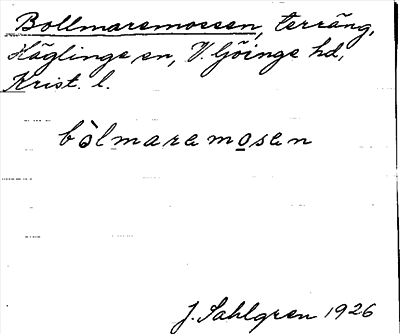 Bollmaremossen, terräng,
Häglinge sn, V. Göinge hd,
Krist. l.
bòlmaremosen
J. Sahlgren 1926